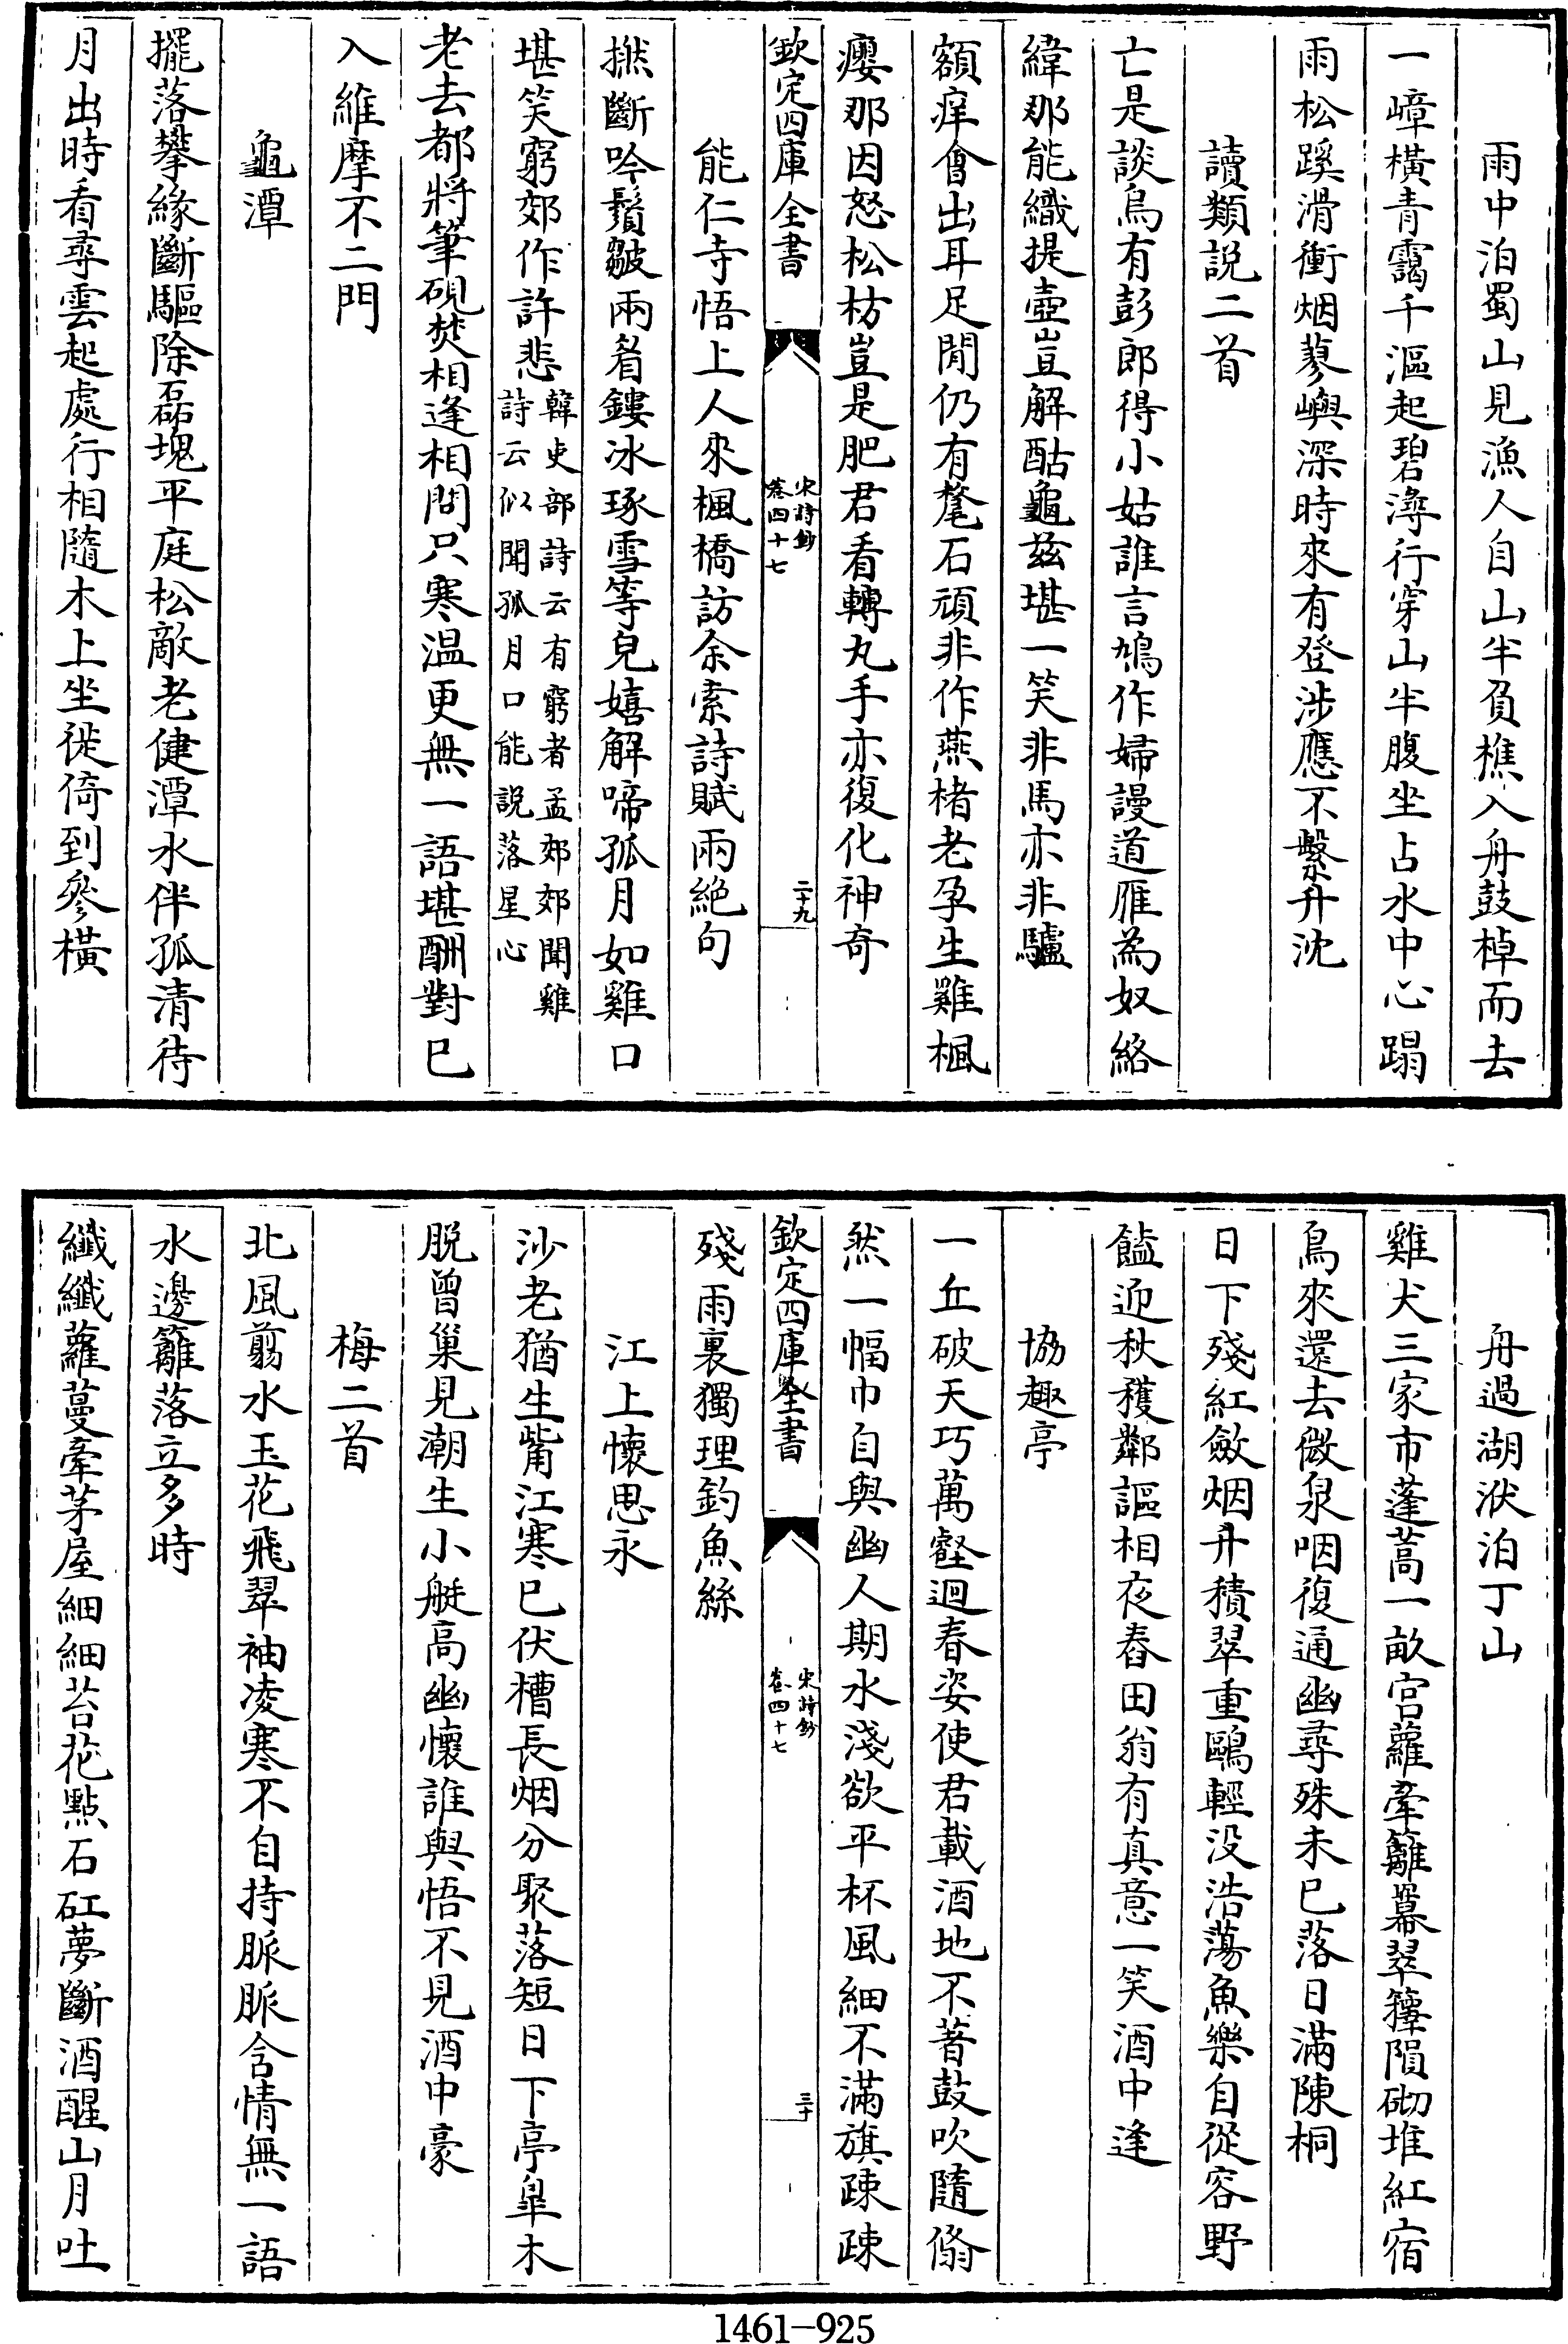 雨中泊蜀山見漁人自山半負樵入舟鼓棹而去
一嶂橫青靄千漚起碧潯行穿山半腹坐占水中心蹋
雨松蹊滑衝烟蓼嶼深時來有登涉應不繫升沈
讀類説二首
亡是談烏有彭郎得小姑誰言鳩作婦謾道雁為奴絡
緯那能織提壺豈解酤龜茲堪一笑非馬亦非驢
額痒會出耳足閒仍有髦石頑非作燕楮老孕生雞楓
癭那因怒松枋豈是肥君看轉丸手亦復化神奇
欽定四庫全書
宋詩鈔
卷四十七
二十九
能仁寺悟上人來楓橋訪余索詩賦兩絶句
撚斷吟鬚皺兩眉鏤冰琢雪等兒嬉解啼孤月如雞口
堪笑窮郊作許悲韓吏部詩云有窮者孟郊郊聞雞
詩云似聞孤月口能説落星心
老去都將筆硯焚相逢相問只寒温更無一語堪酬對已
入維摩不二門
龜潭
擺落攀緣斷驅除磊塊平庭松敵老健潭水伴孤清待
月出時看尋雲起處行相隨木上坐徙倚到參橫
舟過湖洑泊丁山
雞犬三家市蓬蒿一畝宫蘿牽籬羃翠籜隕砌堆紅宿
鳥來還去微泉咽復通幽尋殊未已落日滿陳桐
日下殘紅斂烟升積翠重鷗輕没浩蕩魚樂自從容野
饁迎秋穫鄰謳相夜舂田翁有真意一笑酒中逢
協趣亭
一丘破天巧萬壑迴春姿使君載酒地不著鼓吹隨翛
然一幅巾自與幽人期水淺欲平杯風細不滿旗疎疎
欽定四庫全書
宋詩鈔
卷四十七
三十
殘雨裏獨理釣魚絲
江上懷思永
沙老猶生觜江寒已伏槽長烟分聚落短日下亭臯木
脱曾巢見潮生小艇高幽懷誰與悟不見酒中豪
梅二首
北風翦水玉花飛翠袖凌寒不自持脈脈含情無一語
水邊籬落立多時
纖纖蘿蔓牽茅屋細細苔花點石矼夢斷酒醒山月吐
1461-925